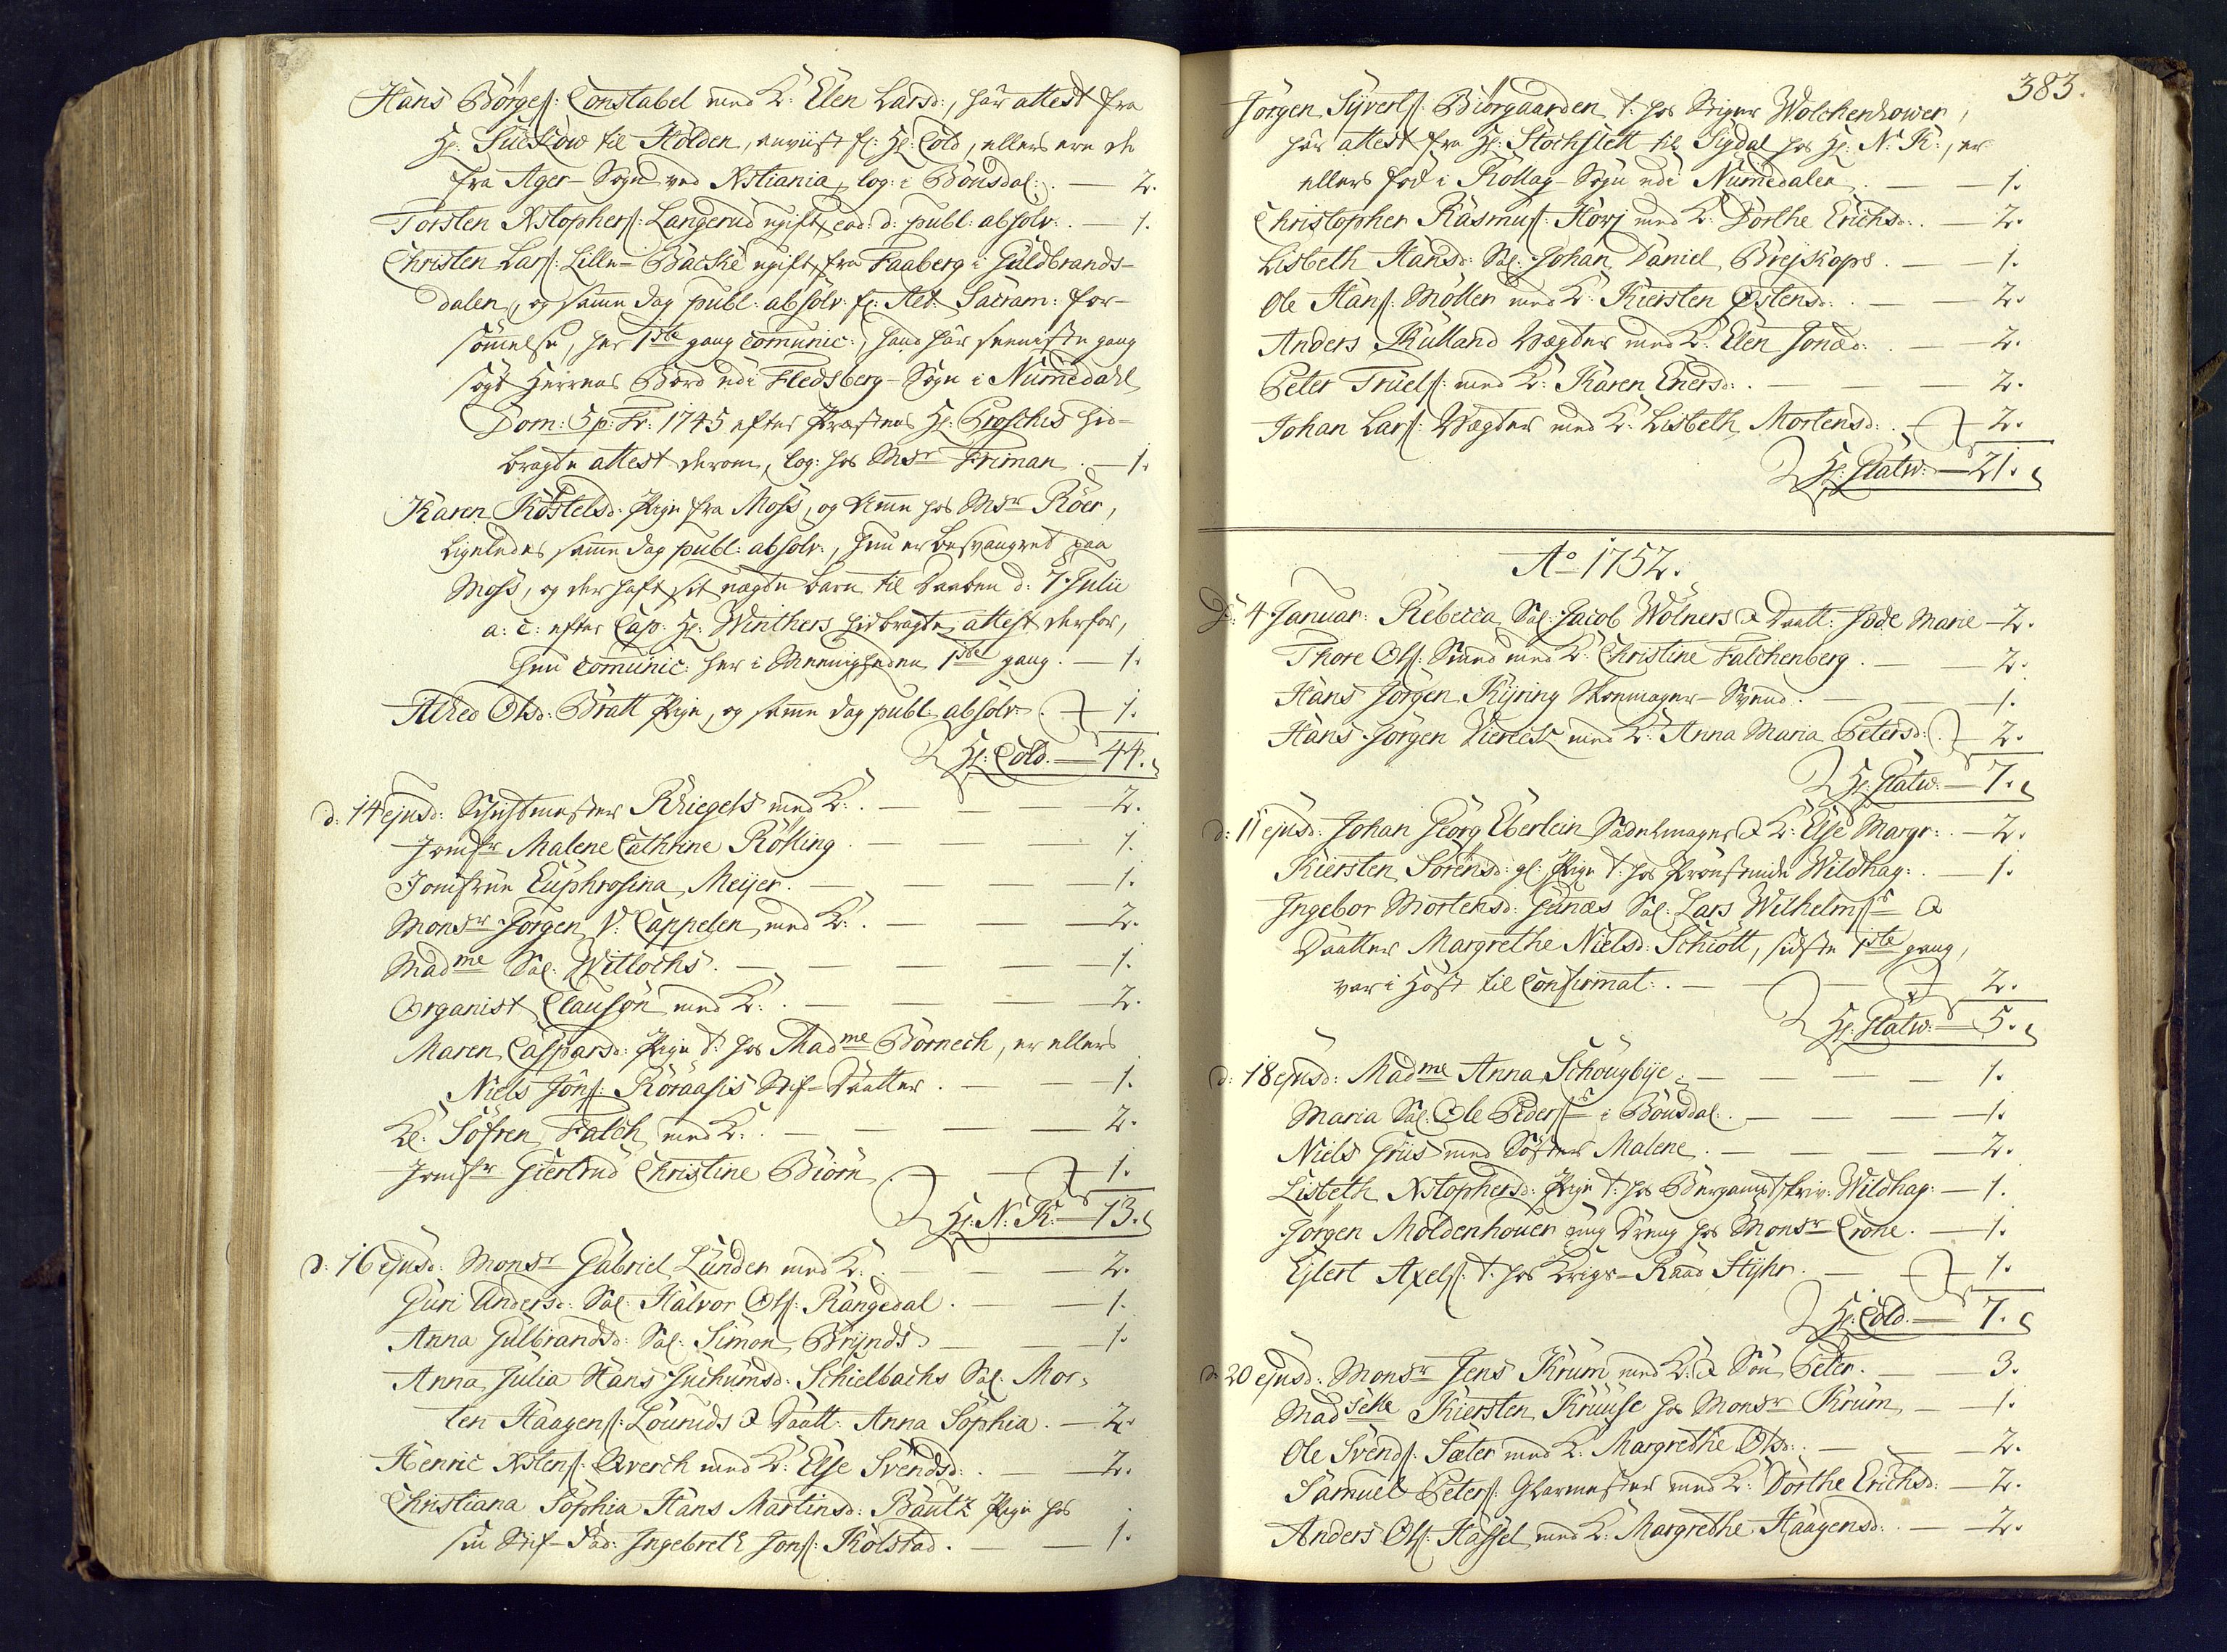 Hans Börges: Constabel med K: Elen Larsd:, har attest fra
Hr: Suckow til Holden, anviist fr: Hr: Cold, ellers ere de
fra Ager-Sogn ved Xstiania, log: i Bönsdal: . — 2.
Torsten Xstophers: Langerud ugift, eod: d: publ: absolv: . — 1.
Christen Lars: Lille-Bäcke ugift, fra Faaberg i Guldbrands-
dalen, og samme dag publ: absolv: for Alt: Sacram: for-
sömmelse, her 1ste gang comunic:, hand har seeneste gang
sögt Herrens Bord udi Fledsberg-Sogn i Numedahl
Dom: 5 p: Tr: 1745 efter Præstens Hr: Brochs hid-
bragte attest derom, log: hos Msr Friman . — 1.
Karen Köstelsd: Pige fra Moss, og Amme hos Msr Röer,
ligeledes samme dag publ: absolv:, hun er besvangret paa
Moss, og der haft sit uægte barn til Daaben d: 7 Julii
a: c: efter Cap: Hr: Winthers hidbragte attest derfor,
hun comunic: her i Menigheden 1ste gang . — 1.
Alhed Olsd: Bratt Pige, og samme dag publ: absolv: . — 1.
Hr: Cold. — 44.
d: 14 ejusd: Schichtmester Kriegels med K: . — 2.
Jomfr Malene Cathrine Rölling — 1.
Jomfrue Euphrosina Meijer. — 1.
Monsr Jörgen V: Cappelen med K: . — 2.
Madme Sal: Witlochs. — 1.
Organist Clausön med K: . — 2.
Maren Caspersd: Pige t: hos Madme Börnech, er ellers
Niels Jöns: Röraases Stif-Daatter . — 1.
Kl: Söfren Falch med K: . — 2.
Jomfr Giertrud Christine Biörn . — 1.
Hr: N: K: — 13.
d: 16 ejusd: Monsr Gabriel Lunder med K: . — 2.
Guri Andersd: Sal: Halvor Ols: Rangedal . — 1.
Anna Gulbrandsd: Sal: Simon Brynds — 1.
Anna Julia Hans Juchumsd: Schielbachs Sal: Mor-
ten Haagens: Louruds & Daatt: Anna Sophia . — 2.
Henric Xstens: Qverch med K: Else Svendsd: . — 2.
Christiana Sophia Hans Martinsd: Bautz Pige hos
sin Stif-Fad: Ingebret Jons: Kolstad . — 1.
383.
Jörgen Syverts: Biörgaarden t: hos Stiger Wolchenhower,
har attest fra Hr: Stochflett til Sigdal hos Hr: N: K:, er
ellers föd i Rollag-Sogn udi Numedalen . — 1.
Christopher Rasmus: Horj med K: Dorthe Erichsd: . — 2.
Lisbeth Hansd: Sal: Johan Daniel Brejskops . — 1.
Ole Hans: Möller med K: Kiersten Østensd: . — 2.
Anders Kulland Vægter med K: Elen Jonæd: — 2.
Peter Truels: med K: Karen Enersd: . — 2.
Johan Lars: Vægter med K: Lisbeth Mortensd: . — 2.
Hr: Platw: — 21.
Ao 1752.
D: 4 Januar: Rebecca Sal: Jacob Wölners & Daatt: Hode Marie — 2.
Thore Ols: Smed med K: Christine Falchenberg . — 2.
Hans Jörgen Kyring Skomager-Svend . — 1.
Hans Jörgen Viereck med K: Anna Maria Petersd: . — 2.
Hr: Platw: — 7.
d: 11 ejusd: Johan Georg Eberlein Sadelmager & K: Else Margr: . — 2.
Kiersten Sörensd: gl: Pige t: hos Proustinde Wildhag: . — 1.
Ingebor Mortensd: Gunæs Sal: Lars Wilhelms: &
Daatter Margrethe Nielsd: Schiött, sidste 1ste gang,
var i Höst til Confirmat: . — 2.
Hr: Platw: — 5.
d: 18 ejusd: Madme Anna Schougbye: — 1.
Maria Sal: Ole Peders: i Bönsdal . — 1.
Niels Griis med Söster Malene . — 2.
Lisbeth Xstophersd: Pige t: hos Bergamptskriv: Wildhag: — 1.
Jörgen Moldenhouer ung Dreng hos Monsr Crone . — 1.
Ejlert Axels: t: hos Krigs-Raad Styhr . — 1.
Hr: Cold. — 7.
d: 20 ejusd: Monsr Jens Krum med K: & Sön Peter . — 3.
Madselle Kiersten Kruuse hos Monsr Krum — 1.
Ole Svends: Sæter med K: Margrethe Olsd: . — 2.
Samuel Peters: Glarmester med K: Dorthe Erichsd: — 2.
Anders Ols: Hassel med K: Margrethe Haagensd: . — 2.